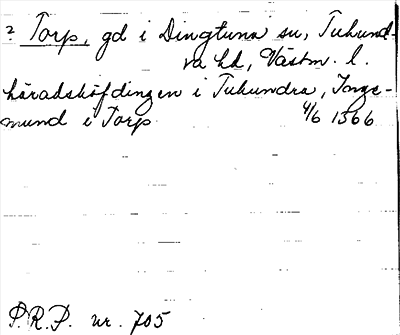 ? Torp, gd i Dingtuna sn, Tuhund-
ra hd, Västm. l.
häradshöfdingen i Tuhundra, Inge-
mund i Torp 4/6 1366
P.R.P. nr. 705